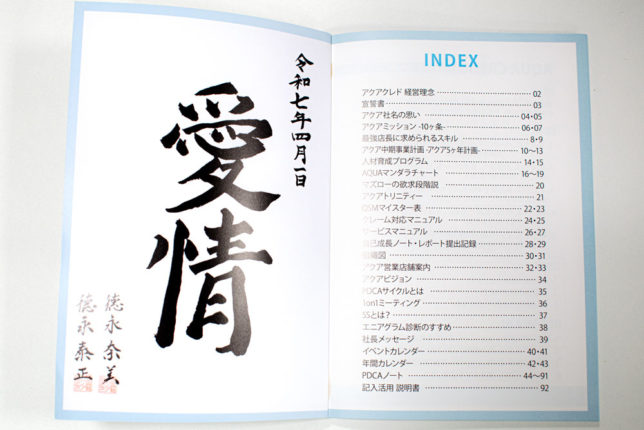 令和七年四月一日
愛情
徳永奈美
徳永泰正
INDEX
アクアクレド 経営理念 02
宣誓書 03
アクア社名の思い 04・05
アクアミッション -10ヶ条- 06・07
最強店長に求められるスキル 8・9
アクア中期事業計画 -アクア5ヶ年計画- 10〜13
人材育成プログラム 14・15
AQUAマンダラチャート 16〜19
マズローの欲求段階説 20
アクアトリニティー 21
QSMマイスター表 22・23
クレーム対応マニュアル 24・25
サービスマニュアル 26・27
自己成長ノート・レポート提出記録 28・29
組織図 30・31
アクア営業店舗案内 32・33
アクアビジョン 34
PDCAサイクルとは 35
1on1ミーティング 36
5Sとは? 37
エニアグラム診断のすすめ 38
社長メッセージ 39
イベントカレンダー 40・41
年間カレンダー 42・43
PDCAノート 44〜91
記入活用 説明書 92